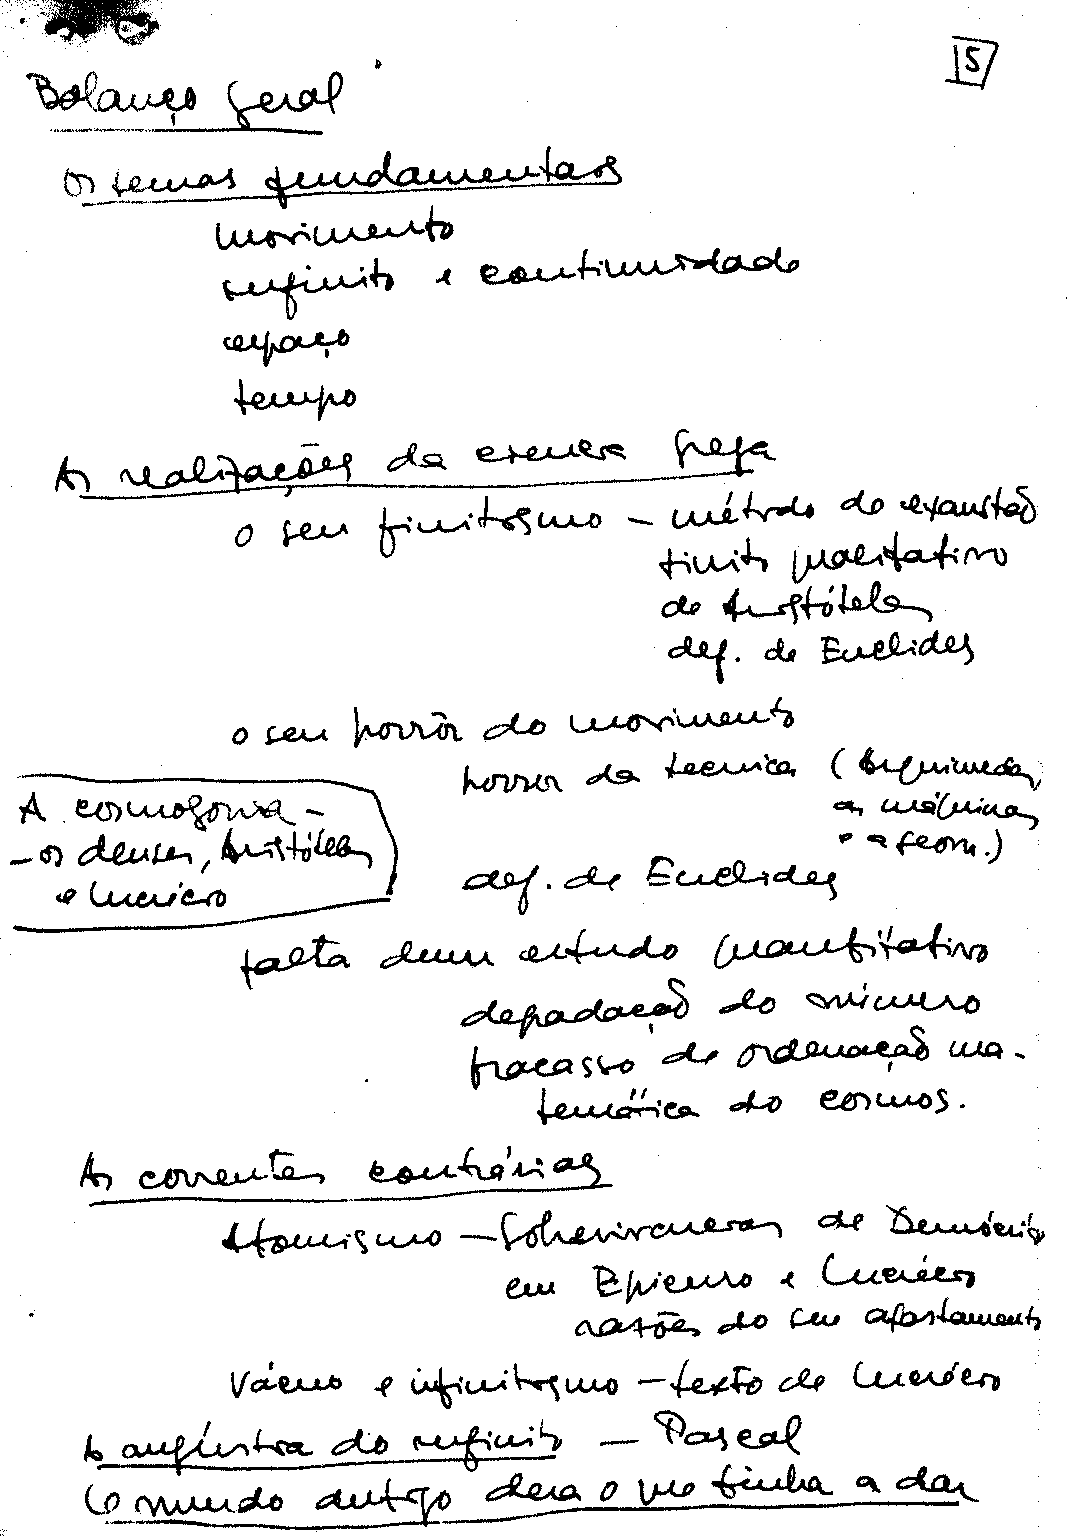 5
Balanço geral
Os temas fundamentais
movimento
infinito e continuidade
espaço
tempo
As realizações da ciência grega
o seu finitismo – método de exaustão
finito qualitativo
de Aristóteles
def. de Euclides
o seu horror do movimento
horror da tecnica (Arquimedes,
as máquinas
e a geom.)
A cosmogonia –
– os deuses, Aristóteles
e Lucrécio
def. de Euclides
falta dum estudo quantitativo
degradação do número
fracasso de ordenação ma-
temática do cosmos.
As correntes contrárias
Atomismo – Sobrevivencia de Demócrito
em Epicuro e Lucrécio
razões do seu afastamento
Vácuo e infinitismo – texto de Lucrécio
A angústia do infinito – Pascal
O mundo antigo dera o que tinha a dar